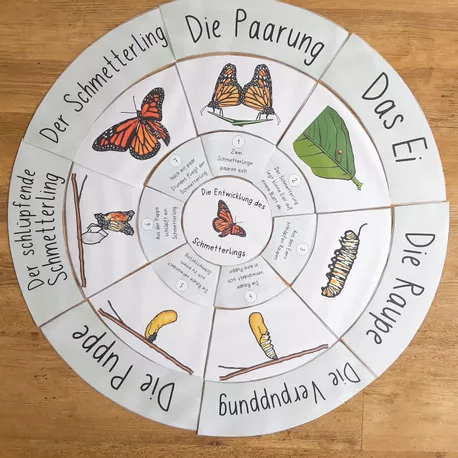 Die Entwicklung des
Schmetterlings
Die Paarung
1
Zwei
Schmetterlinge
paaren sich
Das Ei
2
Der Schmetterling
legt kleine Eier auf
einem Blatt ab
Die Raupe
3
Aus dem Ei
schlüpfen Raupen
Die Verpuppung
4
Die Raupe
verwandelt sich
in eine Puppe
Die Puppe
5
Die Raupe verwandelt
sich zu einem
Schmetterling
Der schlüpfende
Schmetterling
6
Aus der Puppe
schlüpft ein
Schmetterling
Der Schmetterling
7
Nach ein paar
Stunden fliegt der
Schmetterling